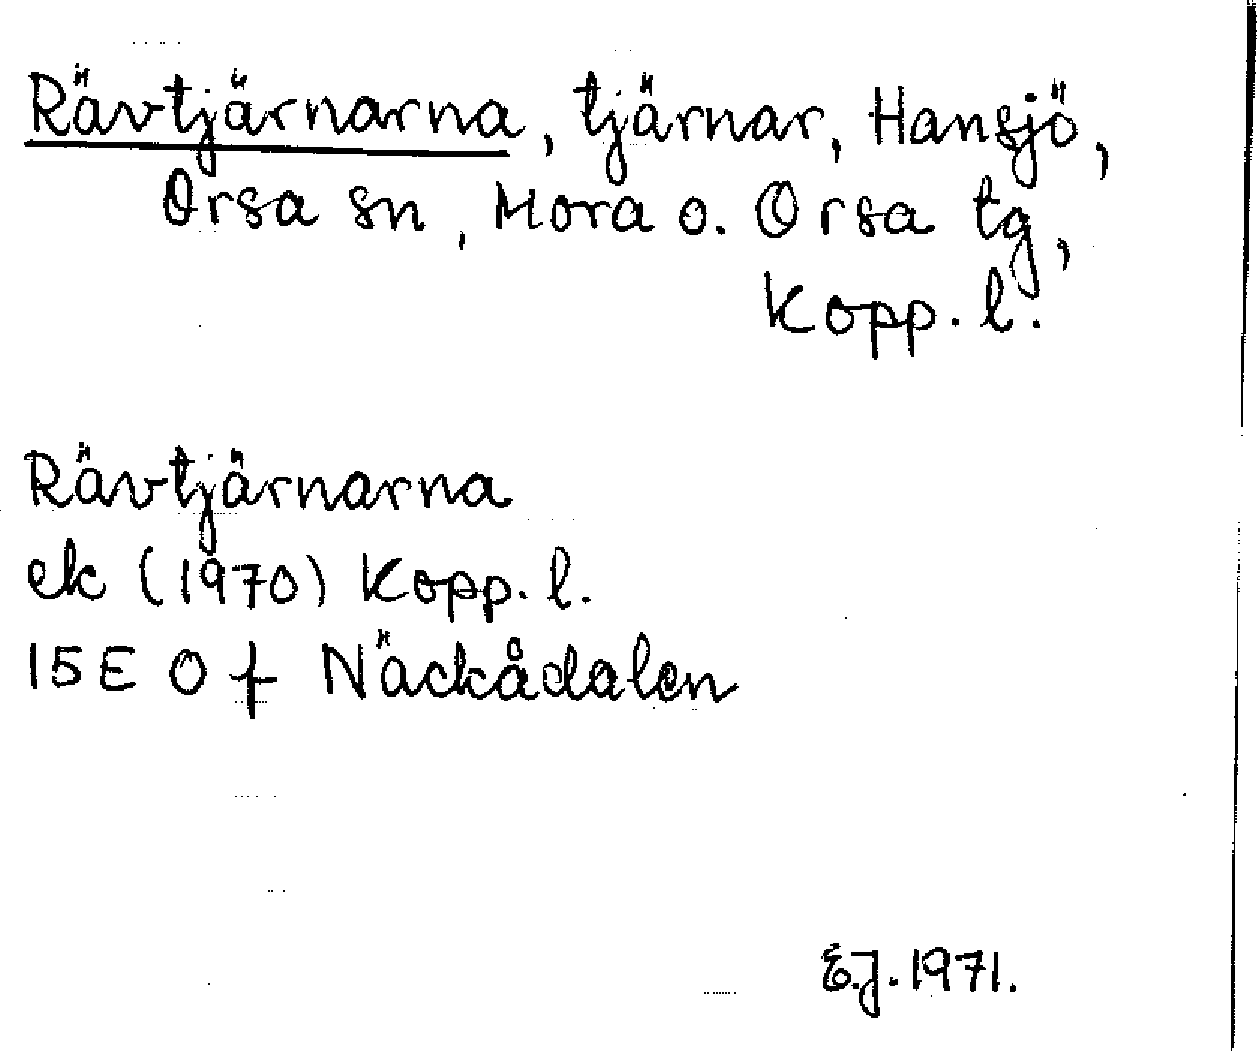 Rävtjärnarna, tjärnar, Hansjö,
Orsa sn, Mora o. Orsa tg,
Kopp. l.
Rävtjärnarna
ek (1970) Kopp. l.
15E 0 f Näckådalen
E.J. 1971.